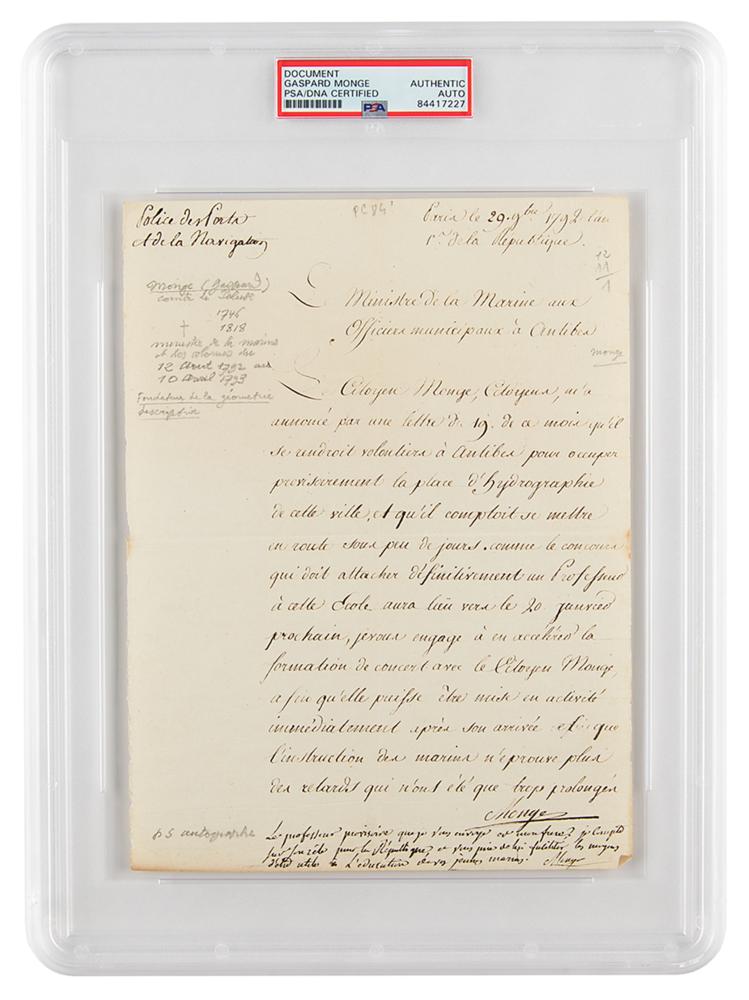 DOCUMENT
GASPARD MONGE
PSA/DNA CERTIFIED
AUTHENTIC
AUTO
84417227
PSA
Police des Ports
et de la Navigation
PC 84
Paris le 29. 9bre 1792 l'an
1er de la République.
12
11
1
Monge (Gaspard)
comte de Peluse
1746
† 1818
ministre de la marine
et des colonies du
12 Aout 1792 au
10 avril 1793
Fondateur de la géometrie
descriptive
Le Ministre de la Marine aux
Officiers municipaux à Antibes
monge
Le Citoyen Monge, Citoyens, m'a
annoncé par une lettre du 19. de ce mois qu'il
se rendroit volontiers à Antibes pour occuper
provisoirement la place d'hydrographie
de cette ville, et qu'il comptoit se mettre
en route sous peu de jours. comme le concours
qui doit attacher définitivement un Professeur
à cette Ecole aura lieu vers le 20 janvier
prochain, je vous engage à en accélérer la
formation de concert avec le Citoyen Monge,
afin qu'elle puisse être mise en activité
immédiatement après son arrivée et que
l'instruction des marins n'éprouve plus
des retards qui n'ont été que trop prolongés
Monge
PS autographe
Le professeur provisoire que je vous envoye est mon frere, je compte
sur son zèle pour la République, et vous prie de lui faciliter les moyens
d'etre utile à l'education de vos jeunes marins. Monge